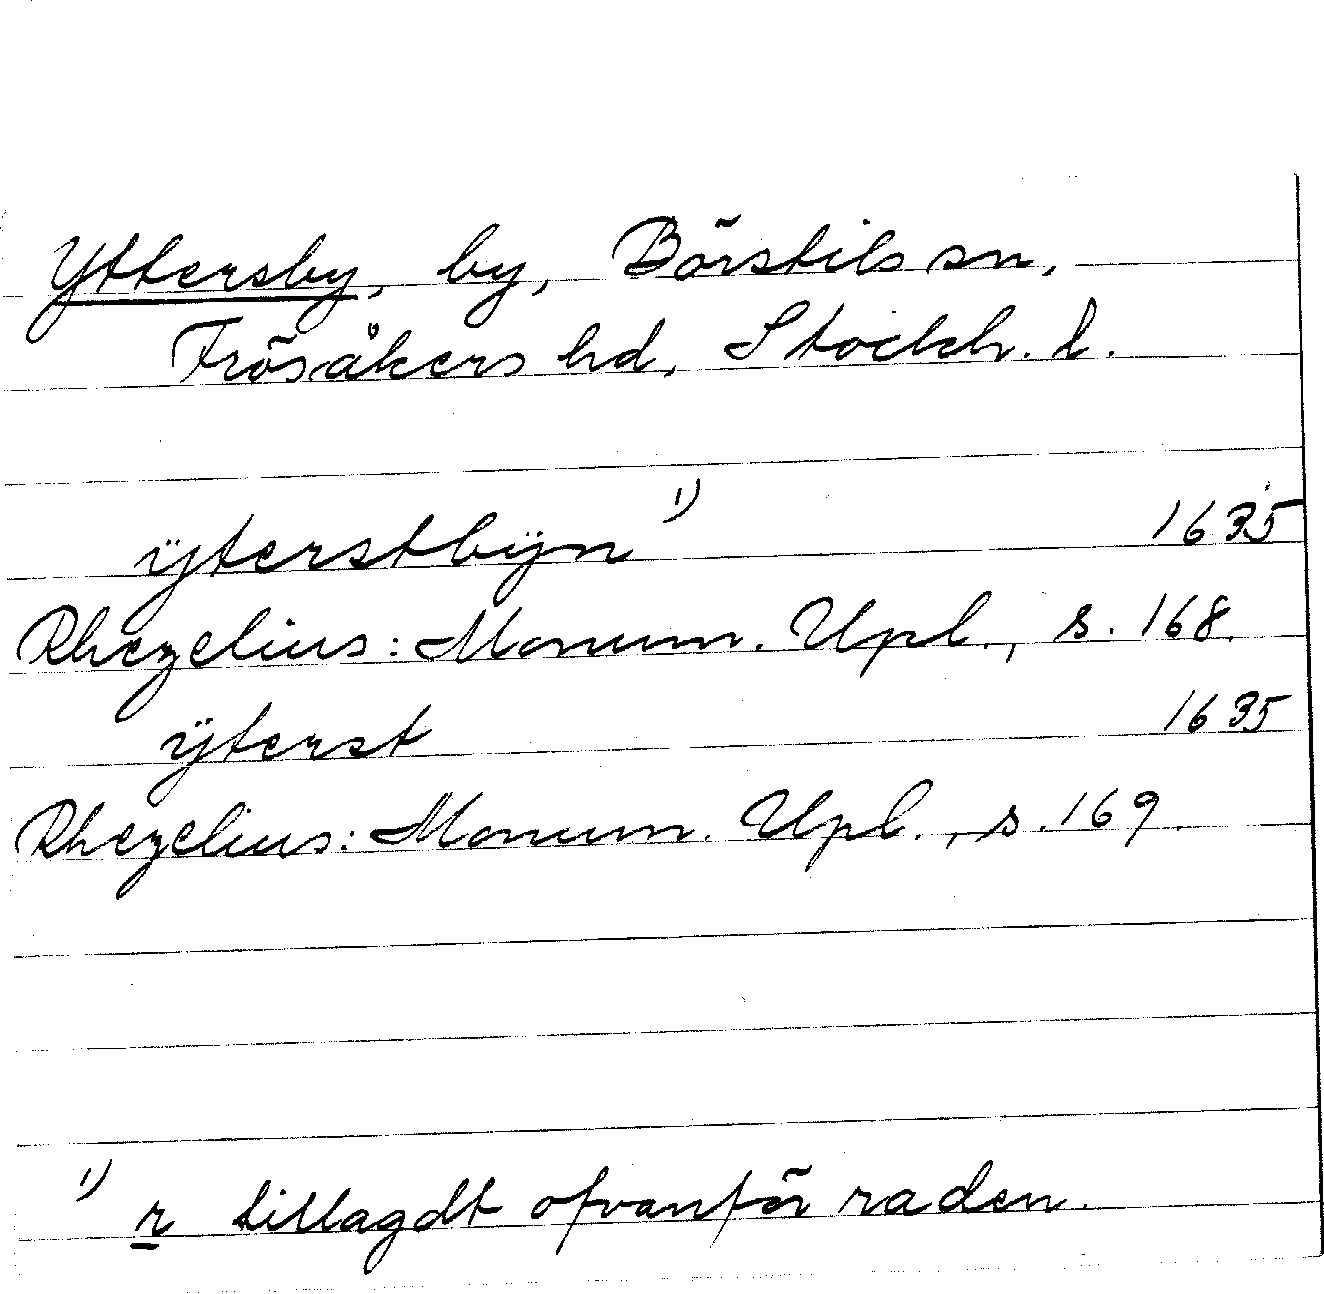 Yttersby, by, Börstils sn,
Frösåkers hd, Stockh. l.
ÿterstbÿn 1) 1635
Rhezelius: Monum. Upl., s. 168.
ÿterst 1635
Rhezelius: Monum. Upl., s. 169.
1) r tillagdt ofvanför raden.